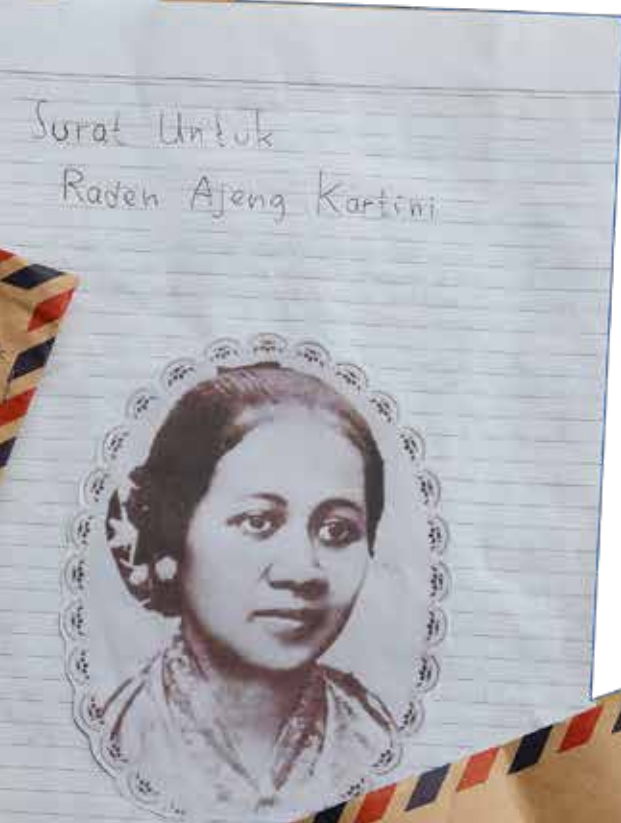 Surat Untuk
Raden Ajeng Kartini